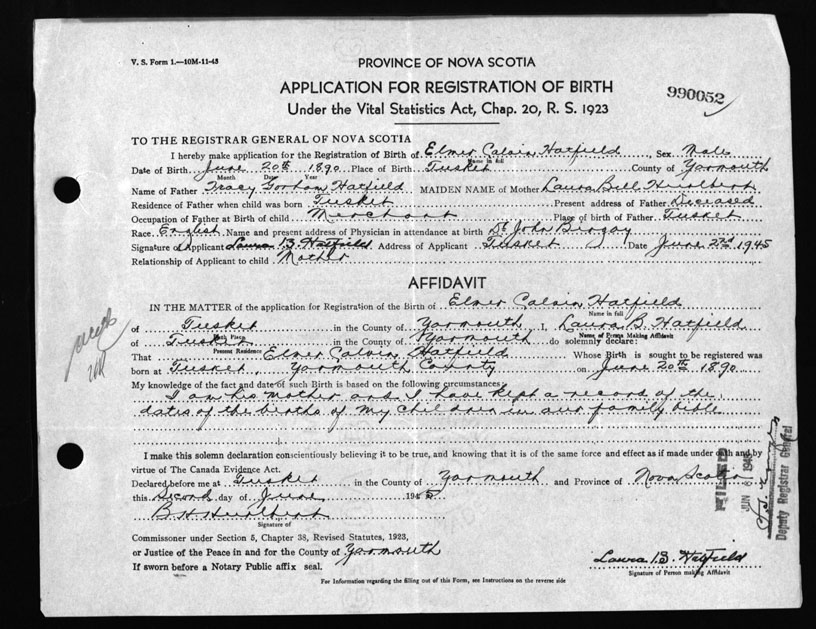 V. S. Form 1.—10M-11-43
PROVINCE OF NOVA SCOTIA
APPLICATION FOR REGISTRATION OF BIRTH
990052
Under the Vital Statistics Act, Chap. 20, R. S. 1923
TO THE REGISTRAR GENERAL OF NOVA SCOTIA
I hereby make application for the Registration of Birth of Elmer Calvin Hatfield, Sex Male
Name in full
Date of Birth June 20th 1890 Place of Birth Tusket County of Yarmouth
Month Date Year
Name of Father Tracy Gorham Hatfield MAIDEN NAME of Mother Laura Bell
Residence of Father when child was born Tusket Present address of Father Deceased
Occupation of Father at Birth of child Merchant Place of birth of Father Tusket
Race English Name and present address of Physician in attendance at birth Dr John
Signature of Applicant Laura B. Hatfield Address of Applicant Tusket Date June 22nd 1945
Relationship of Applicant to child Mother
AFFIDAVIT
IN THE MATTER of the application for Registration of the Birth of Elmer Calvin Hatfield
Name in full
of Tusket in the County of Yarmouth I, Laura B. Hatfield
Birth Place Name of Person Making Affidavit
of Tusket in the County of Yarmouth do solemnly declare:
Present Residence
That Elmer Calvin Hatfield Whose Birth is sought to be registered was
born at Tusket, Yarmouth County on June 20th 1890
My knowledge of the fact and date of such Birth is based on the following circumstances:
I am his mother and I have kept a record of the
dates of the births of my children in our family bible
I make this solemn declaration conscientiously believing it to be true, and knowing that it is of the same force and effect as if made under oath and by
virtue of The Canada Evidence Act.
Declared before me at Tusket in the County of Yarmouth and Province of Nova Scotia
this Second day of June 1945
B H
Signature of
Commissioner under Section 5, Chapter 38, Revised Statutes, 1923,
or Justice of the Peace in and for the County of Yarmouth
If sworn before a Notary Public affix seal.
Laura B. Hatfield
Signature of Person making Affidavit
For Information regarding the filling out of this Form, see Instructions on the reverse side
FILED
JUN 1945
Deputy Registrar General